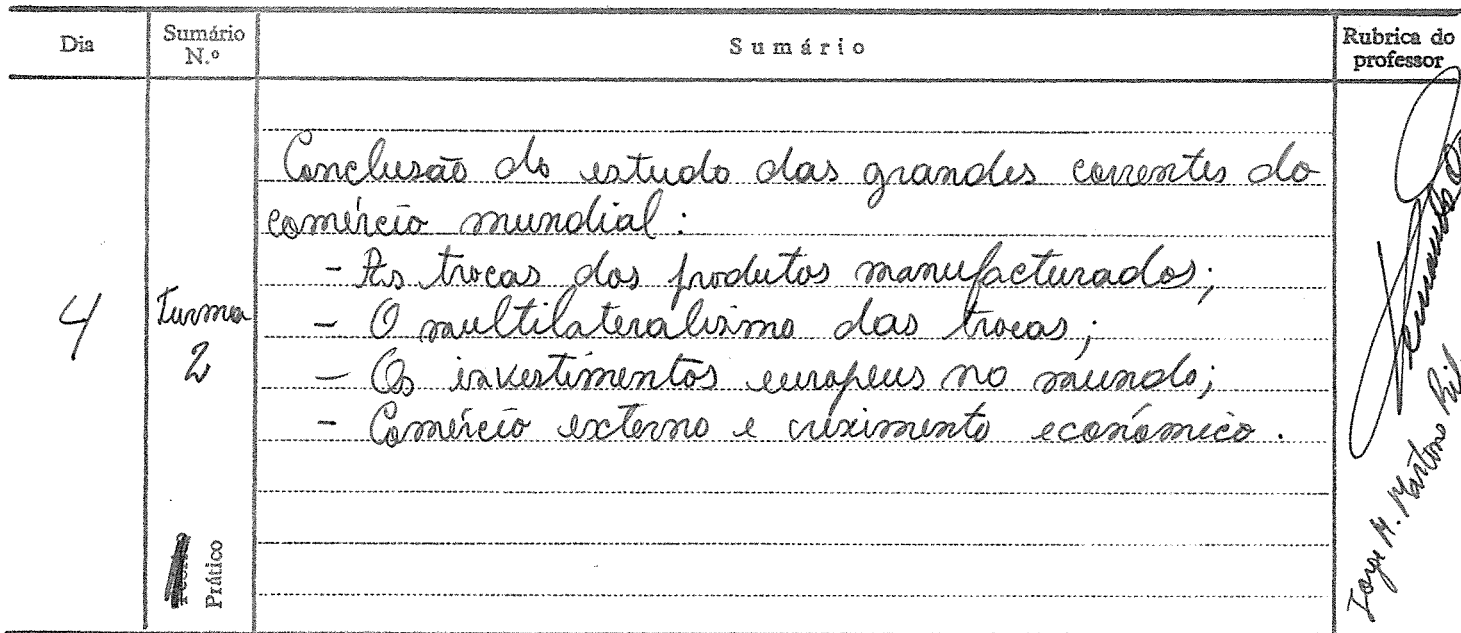 Dia
Sumário
N.º
Sumário
Rubrica do
professor
4
Turma
2
Conclusão do estudo das grandes correntes do
comércio mundial:
- As trocas dos produtos manufacturados;
- O multilateralismo das trocas;
- Os investimentos europeus no mundo;
- Comércio externo e creximento económico.
Prático
Jorge M. Martins